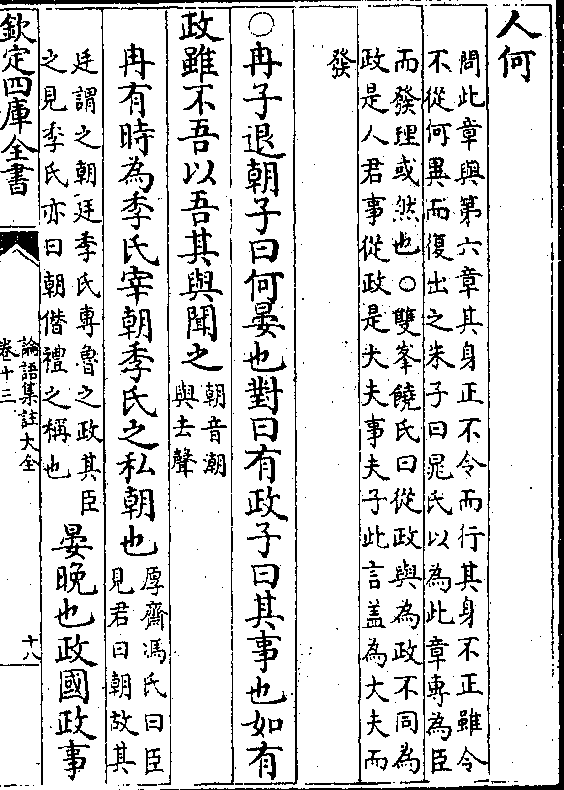 人何
問此章與第六章其身正不令而行其身不正雖令
不從何異而復出之朱子曰晁氏以為此章專為臣
而發理或然也○雙峯饒氏曰從政與為政不同為
政是人君事從政是大夫事夫子此言盖為大夫而
發
○冉子退朝子曰何晏也對曰有政子曰其事也如有
政雖不吾以吾其與聞之
朝音潮
與去聲
冉有時為季氏宰朝季氏之私朝也
厚齋馮氏曰臣
見君曰朝故其
廷謂之朝廷季氏專魯之政其臣
之見季氏亦曰朝僭禮之稱也
晏晚也政國政事
欽定四庫全書
論語集註大全
卷十三
十八